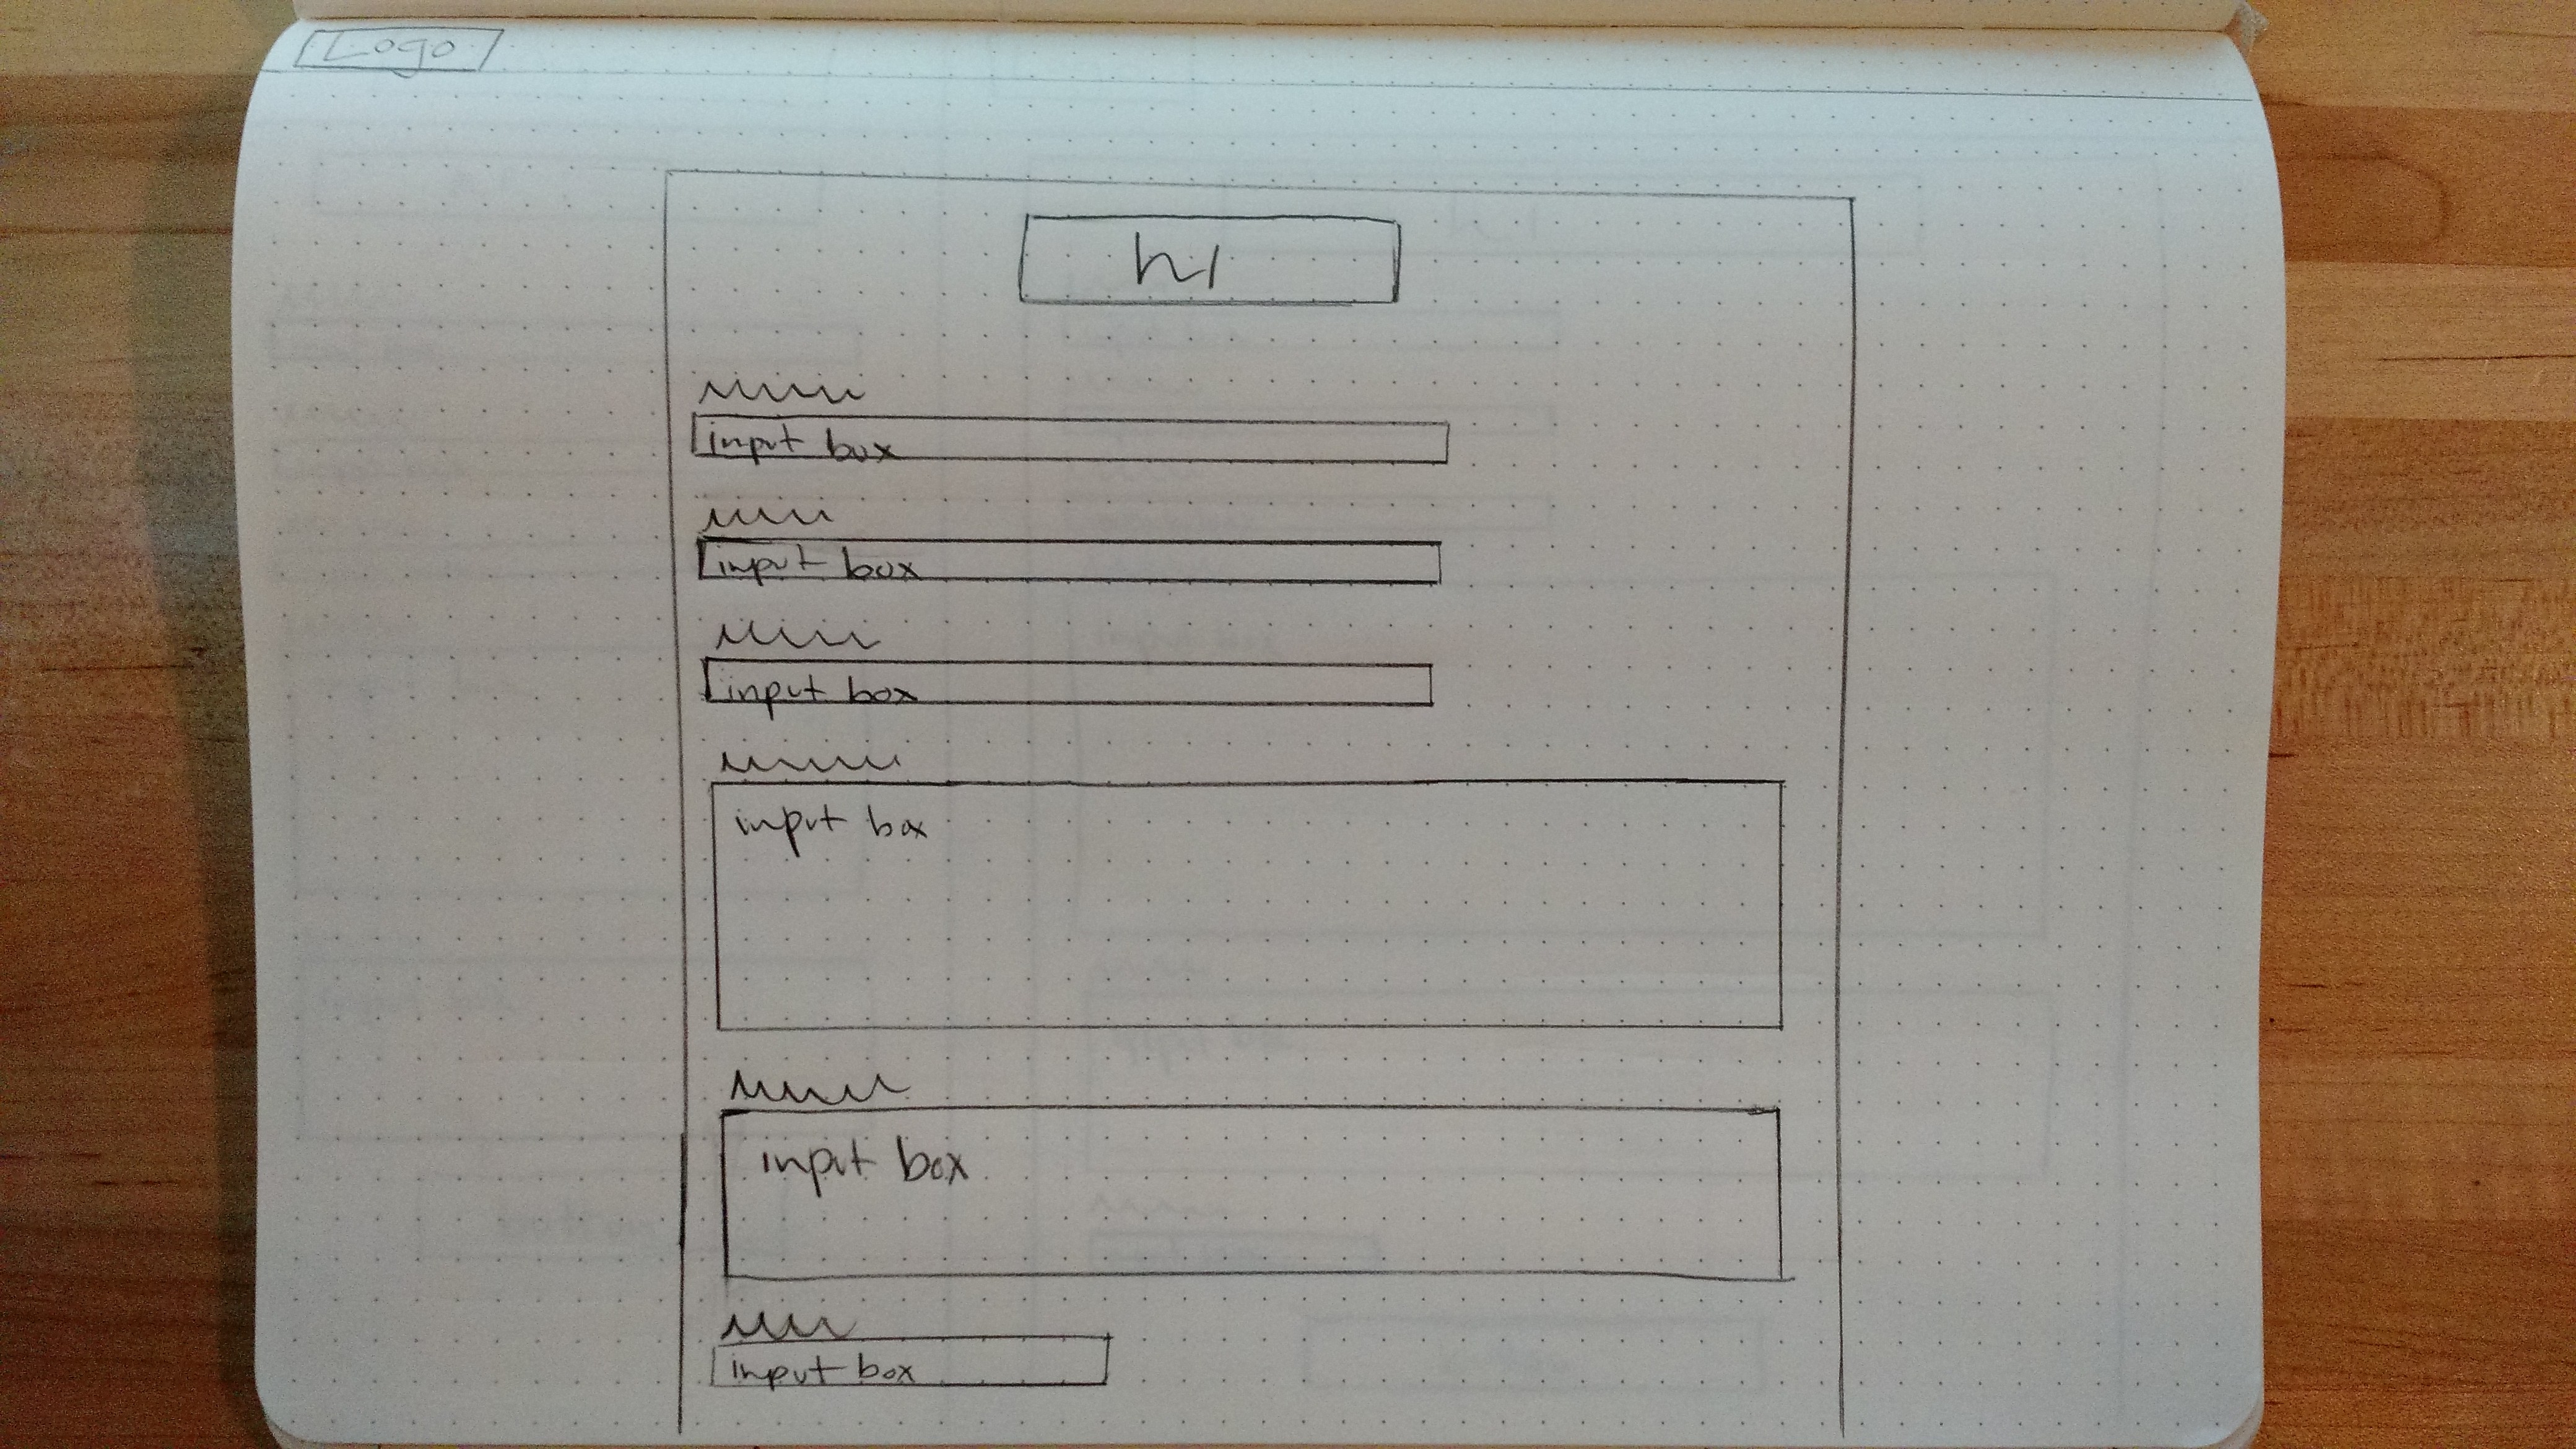 Logo
h1
input box
input box
input box
input box
input box
input box